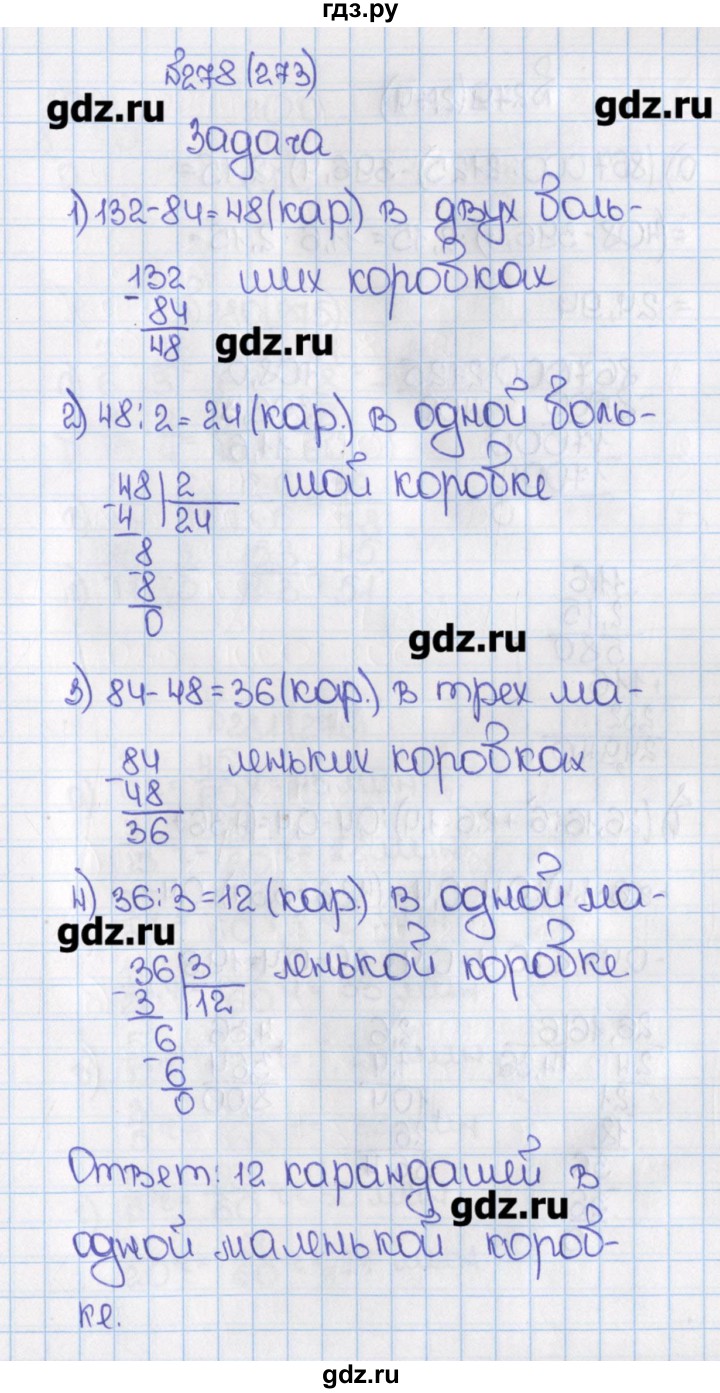 гдз.ру
№278 (273)
gdz.ru
gdz.ru
Задача
1) 132-84=48(кар.) в двух боль-
ших коробках
132
- 84
48
gdz.ru
2) 48:2=24(кар.) в одной боль-
шой коробке
48 2
- 4 24
8
- 8
0
gdz.ru
3) 84-48=36(кар.) в трех ма-
леньких коробках
84
- 48
36
4) 36:3=12(кар.) в одной ма-
gdz.ru
ленькой коробке
36 3
- 3 12
6
- 6
0
Ответ: 12 карандашей в
gdz.ru
одной маленькой короб-
ке.
gdz.ru